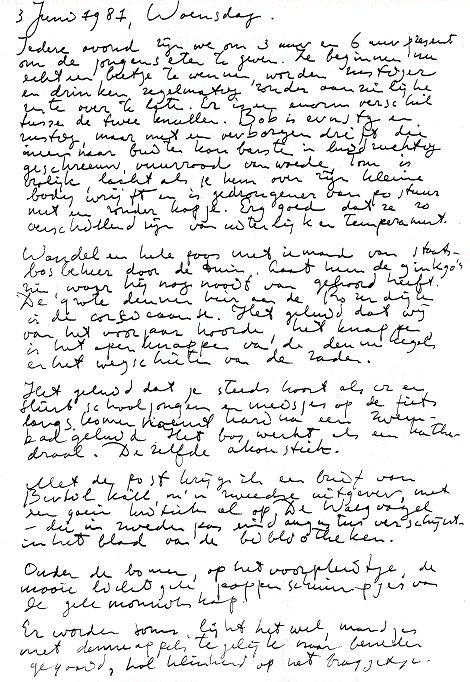 3 Juni 1987, Woensdag.
Iedere avond zijn we om 3 uur en 6 uur present
om de jongens eten te geven. Ze beginnen nu
echt een beetje te wennen, worden rustiger
en drinken regelmatig, zonder aanzienlijke
rest over te laten. Er is een enorm verschil
tussen de twee knullen. Bob is ernstig en
rustig, maar met en verborgen drift die
ineens naar buiten kan barsten in luidruchtig
geschreeuw, vuurrood van woede. Tom is
vrolijk, lacht als je hem over zijn kleine
body wrijft en is gedrongener van postuur
met en ronder kopje. Erg goed dat ze zo
verschillend zijn van uiterlijk en temperament.
Wandel en hele poos met iemand van staats-
bosbeheer door de tuin. Laat hem de ginkgo's
zien, waar hij nog nooit van gehoord heeft.
De grote dennen hier aan de
is de corsicaanse. Het geluid dat wij
van het voorjaar hoorde, het knappen,
is het openknappen van de dennekegels
en het wegschieten van de zaden.
Het geluid dat je steeds hoort als er en
sliert schooljongens en meisjes op de fiets
langs komen neemt hard na een zwem-
badgeluid. Het bos werkt als een kathe-
draal. Dezelfde akoestiek.
Met de post krijg ik een brief van
Bertil Käll, m'n zweedse uitgever, met
een goeie kritiek al op De Walgvogel
- die in zweden pas eind augustus verschijnt -
in het blad van de bibliotheken.
Onder de bomen, op het voorpleintje, de
mooie lichtgele poppenschoentjes van
de gele monnikskap.
Er worden soms, lijkt het wel, mandjes
met denneappels tegelijk naar beneden
gegooid, hol klinkend op het bruggetje.